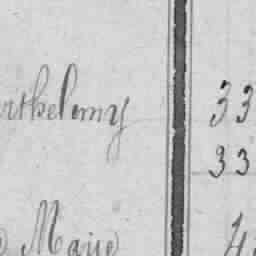 rthelemy 33
33
Marie 4